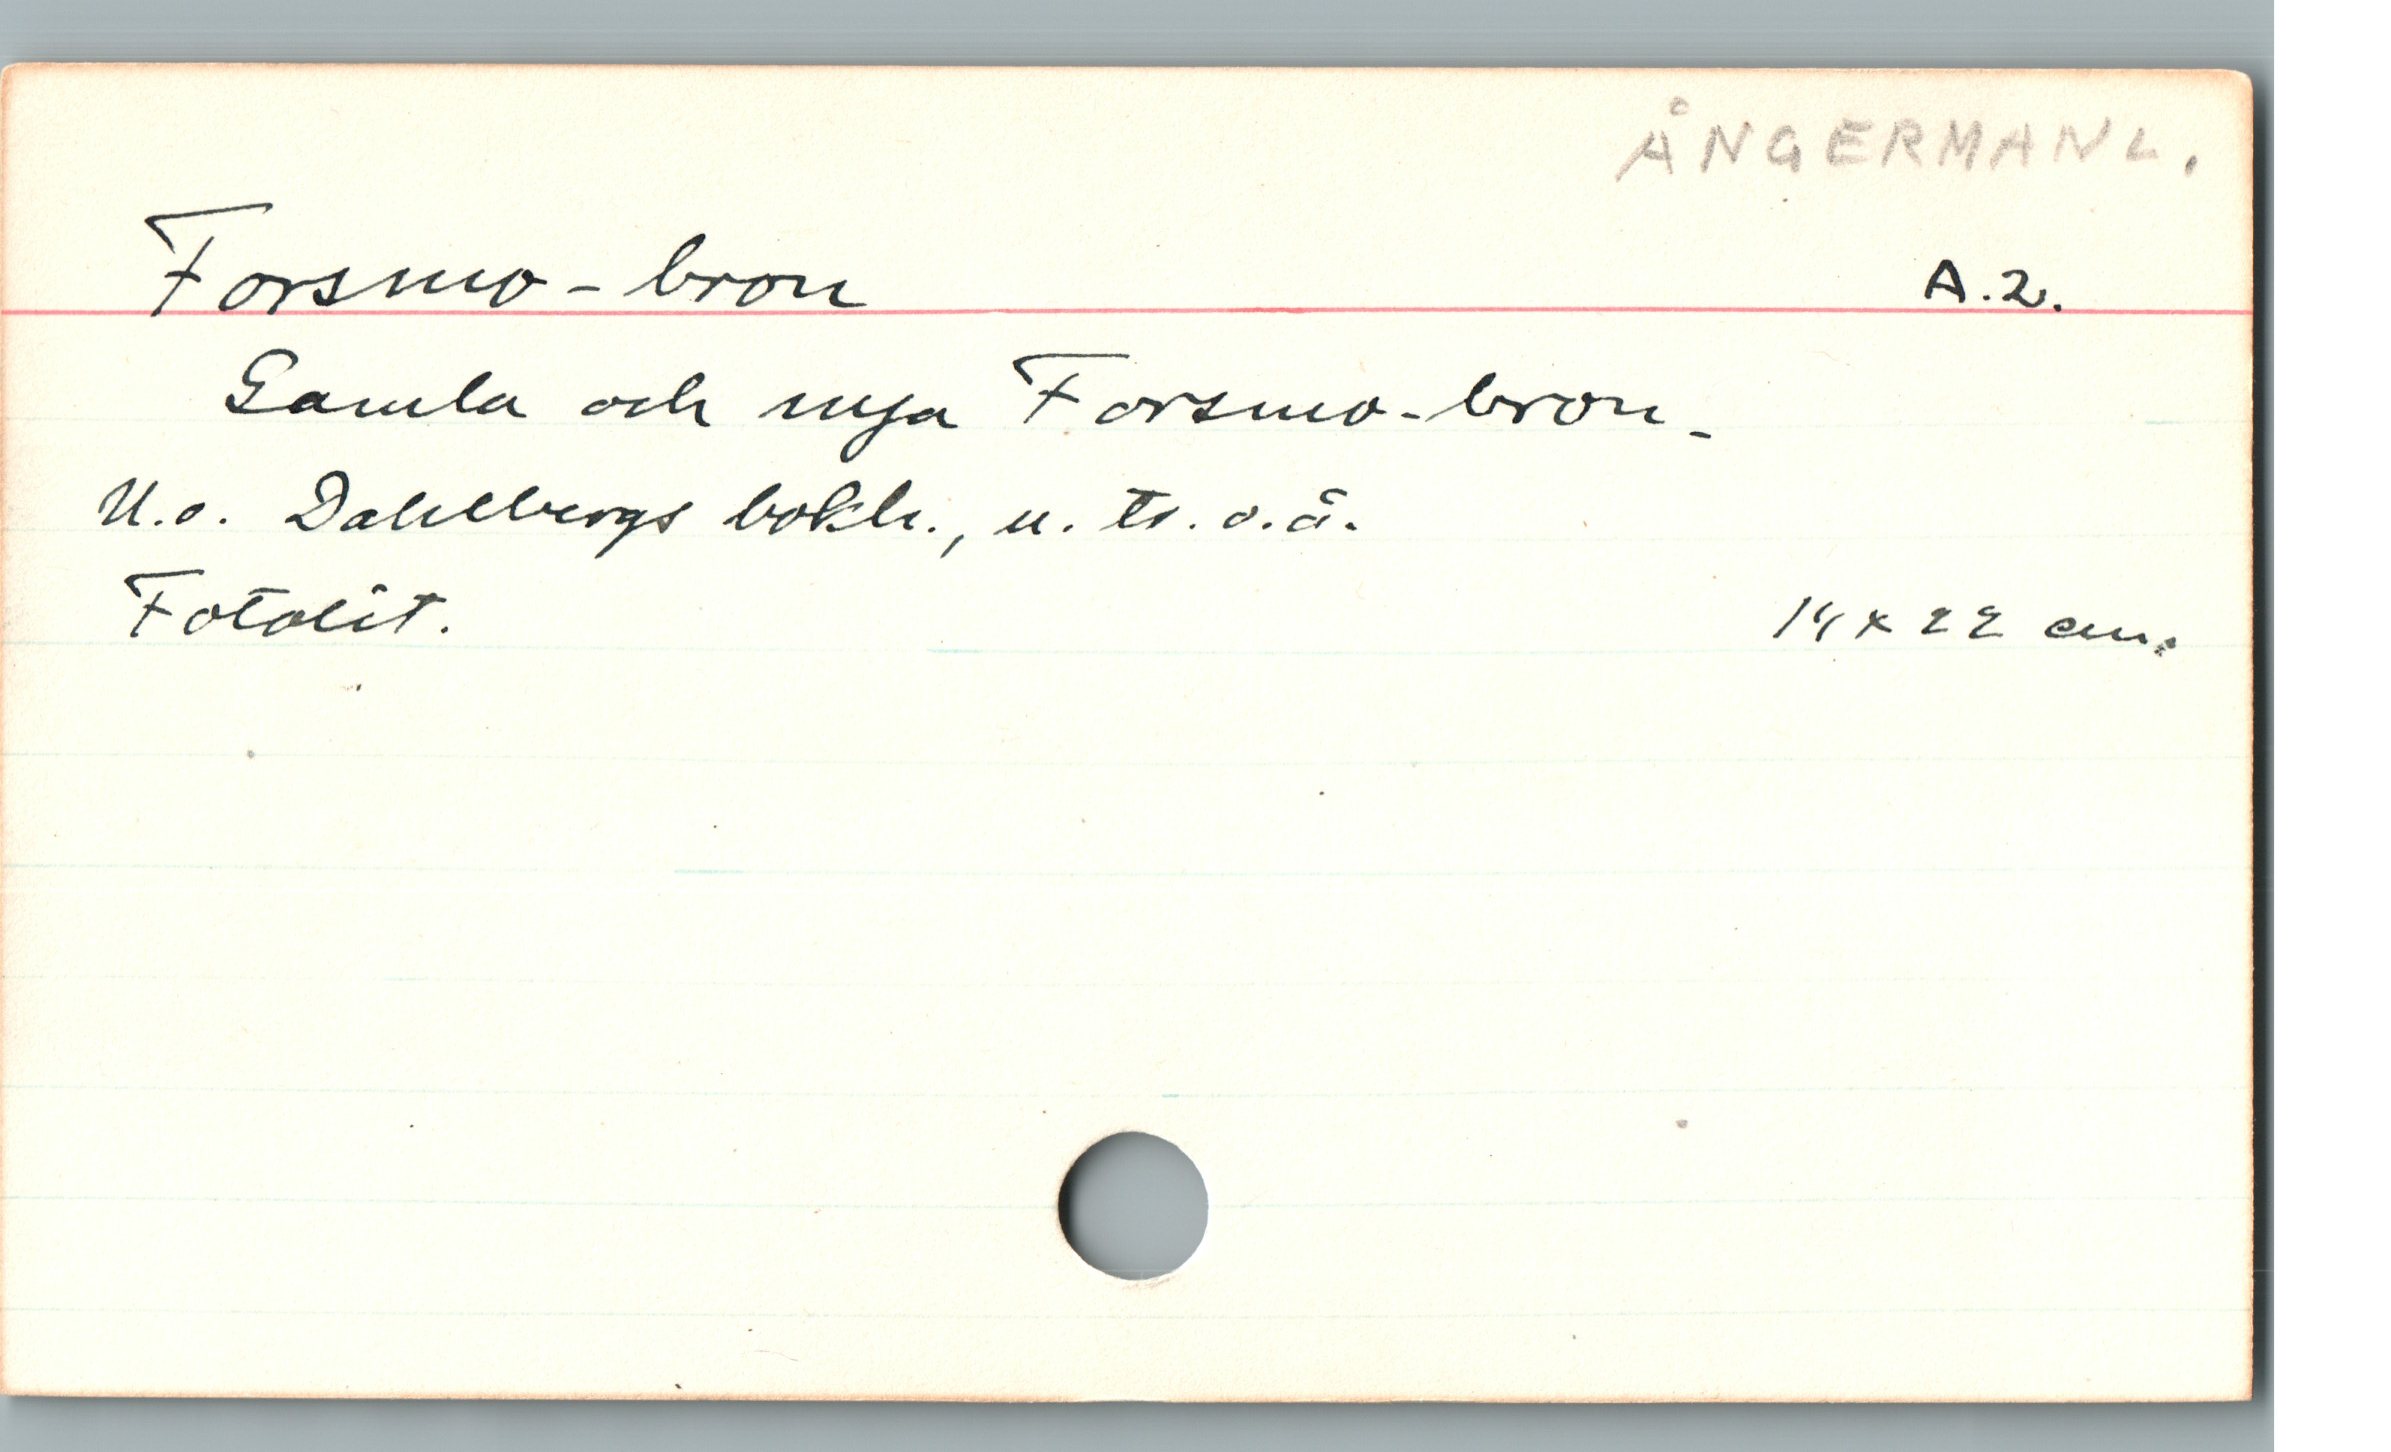 ÅNGERMANL.
Forsmo-bron A.2.
Gamla och nya Forsmo-bron.
U.o. Dahlbergs bokh., u. tr. o. å.
Fotolit. 14 x 22 cm.